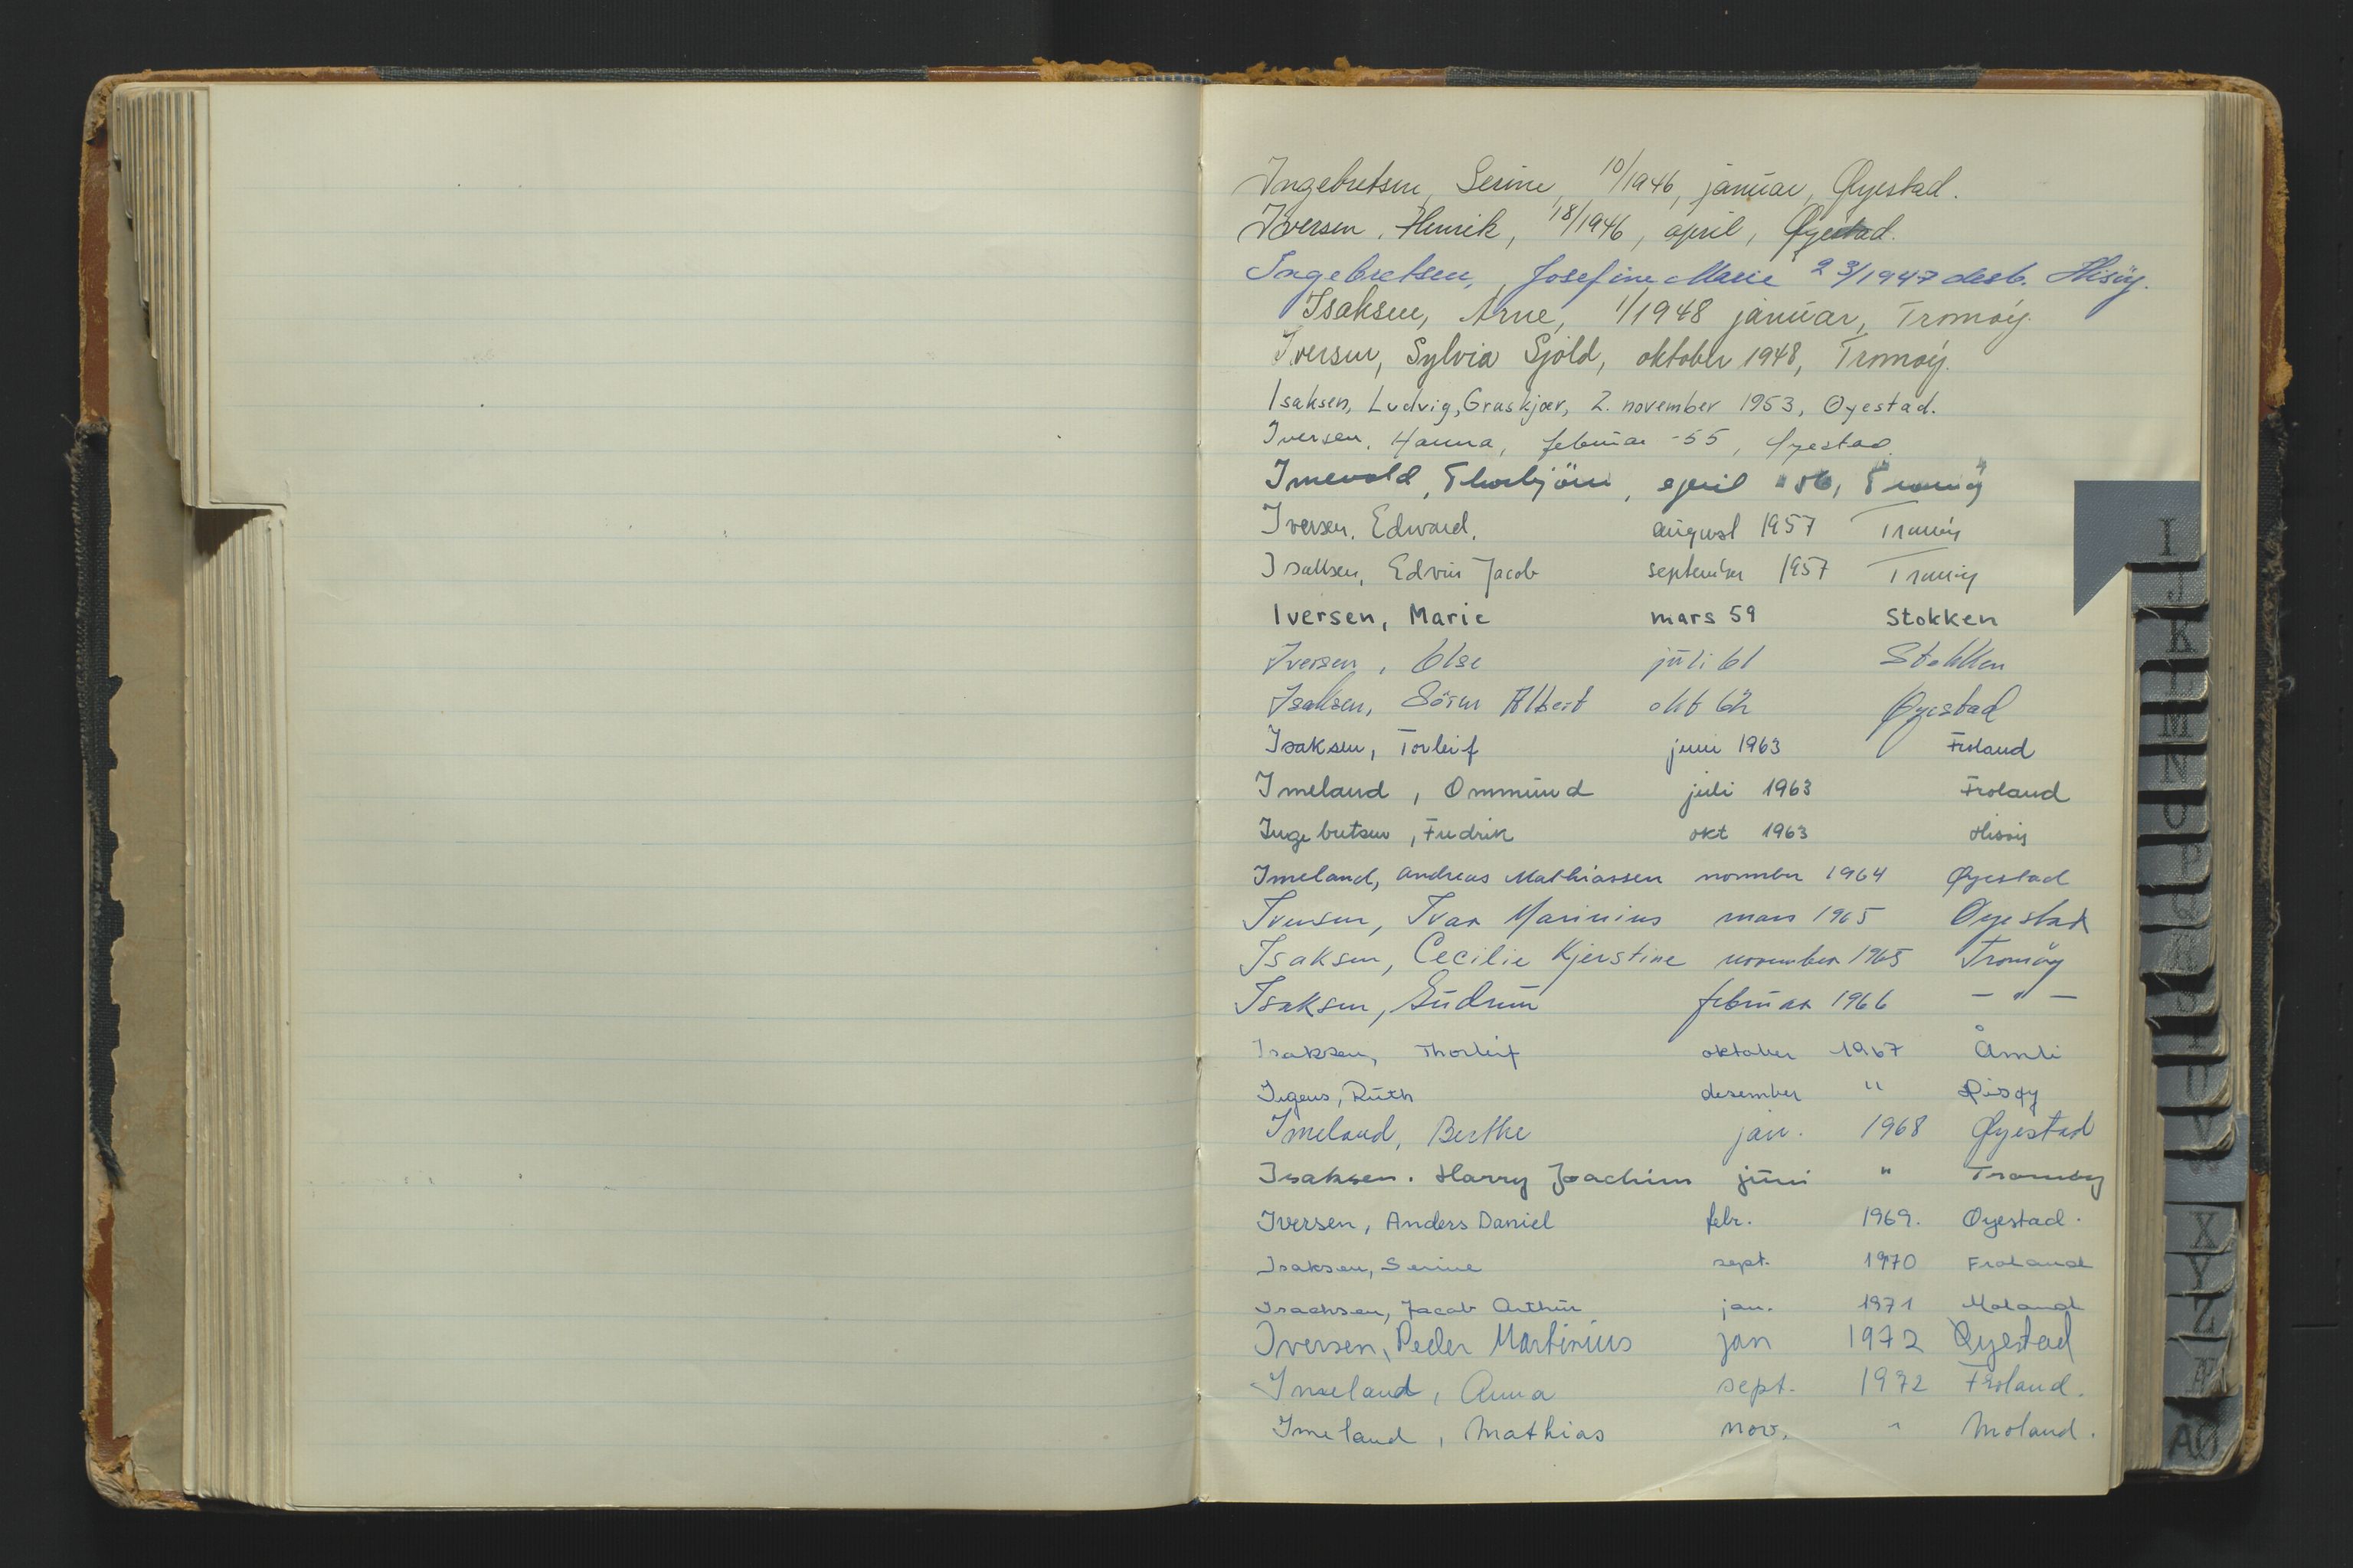 Ingebretsen, Serine, 10/1946, januar, Øyestad.
Iversen, Henrik, 18/1946, april, Øyestad.
Ingebretsen, Josefine Marie 23/1947 desb. Hisøy.
Isaksen, Arne, 1/1948 januar, Tromøy.
Iversen, Sylvia Sjöld, oktober 1948, Tromøy.
Isaksen, Ludvig, Graskjær, 2. november 1953, Øyestad.
Iversen, Hanna, februar -55, Øyestad.
Imevold, Thorbjörn, april "56, Tromöy
Iversen, Edward, august 1957 Tromöy
Isaksen, Edvin Jacob september 1957 Tromöy
Iversen, Marie mars 59 Stokken
Iversen, Else juli 61 Stokken
Isaksen, Sören Albert okt 62 Øyestad
Isaksen, Torleif juni 1963 Froland
Imeland, Ommund juli 1963 Froland
Ingebretsen, Fredrik okt 1963 Hisöy
Imeland, Andreas Mathiassen november 1964 Øyestad
Iversen, Ivar Marinius mars 1965 Øyestad
Isaksen, Cecilie Kjerstine november 1965 Tromöy
Isaksen, Gudrun februar 1966 - " -
Isaksen, Thorleif oktober 1967 Åmli
Ruth desember " Hisøy
Imeland, Berthe jan. 1968 Øyestad
Isaksen. Harry Joachim juni " Tromöy
Iversen, Anders Daniel febr. 1969. Øyestad.
Isaksen, Serine sept. 1970 Froland
Isachsen, Jacob Arthur jan. 1971 Moland
Iversen, Peder Martinius jan 1972 Øyestad
Imeland, Anna sept. 1972 Froland.
Imeland, Mathias nov. " Moland.
I
J
K
L
M
N
O
P
Q
R
S
T
U
V
W
X
Y
Z
Æ
AØ